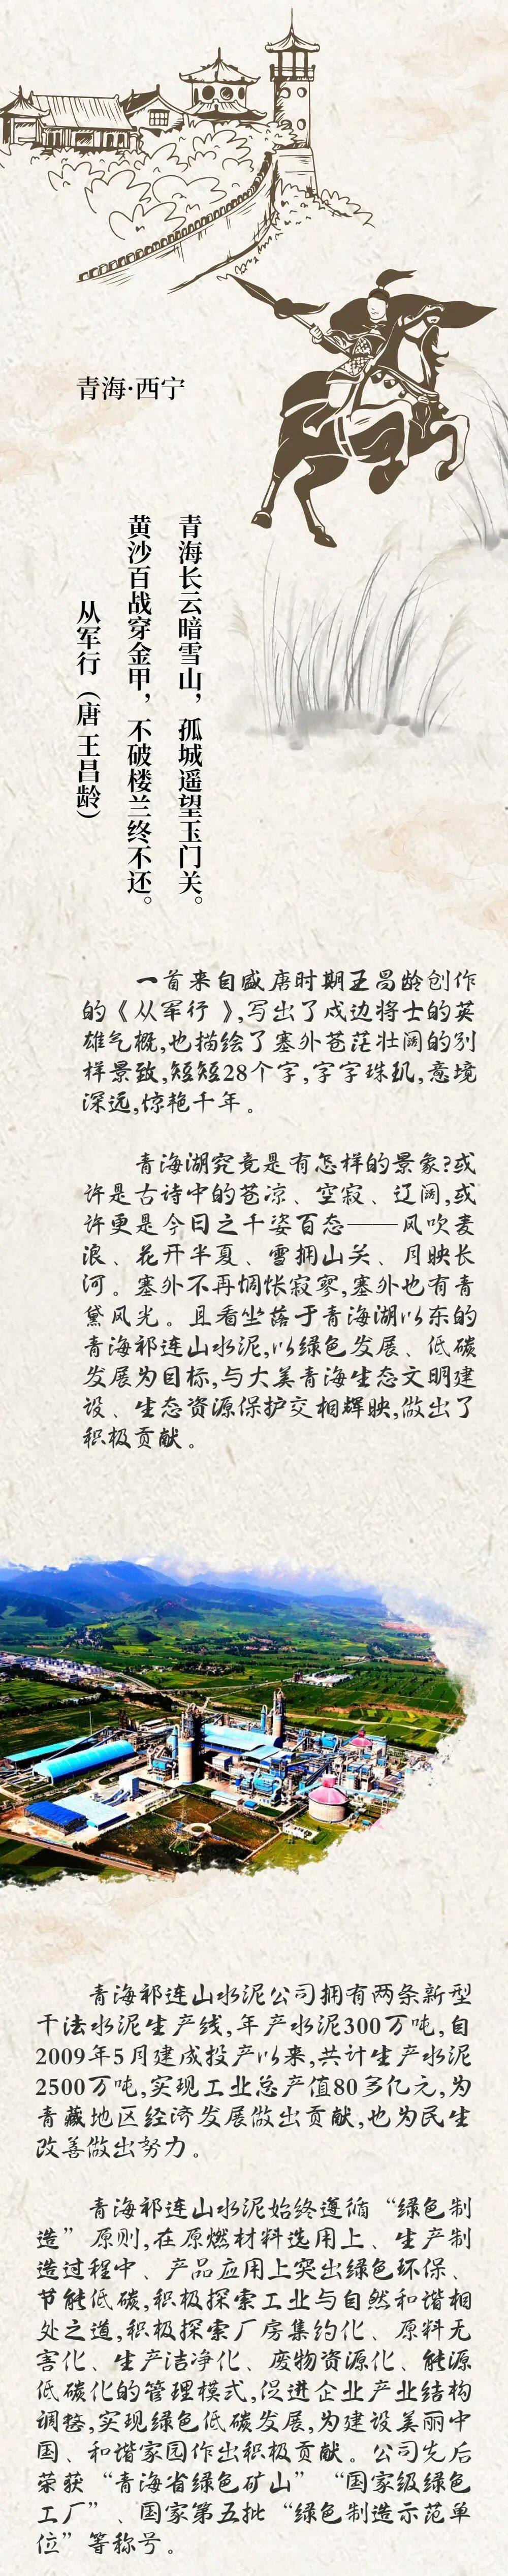 青海·西宁
青海长云暗雪山，孤城遥望玉门关。
黄沙百战穿金甲，不破楼兰终不还。
从军行（唐 王昌龄）
一首来自盛唐时期王昌龄创作
的《从军行》,写出了戍边将士的英
雄气概,也描绘了塞外苍茫壮阔的别
样景致,短短28个字,字字珠玑,意境
深远,惊艳千年。
青海湖究竟是有怎样的景象?或
许是古诗中的苍凉、空寂、辽阔,或
许更是今日之千姿百态——风吹麦
浪、花开半夏、雪拥山关、月映长
河。塞外不再惆怅寂寥,塞外也有青
黛风光。且看坐落于青海湖以东的
青海祁连山水泥,以绿色发展、低碳
发展为目标,与大美青海生态文明建
设、生态资源保护交相辉映,做出了
积极贡献。
青海祁连山水泥公司拥有两条新型
干法水泥生产线,年产水泥300万吨,自
2009年5月建成投产以来,共计生产水泥
2500万吨,实现工业总产值80多亿元,为
青藏地区经济发展做出贡献,也为民生
改善做出努力。
青海祁连山水泥始终遵循“绿色制
造”原则,在原燃材料选用上、生产制
造过程中、产品应用上突出绿色环保、
节能低碳,积极探索工业与自然和谐相
处之道,积极探索厂房集约化、原料无
害化、生产洁净化、废物资源化、能源
低碳化的管理模式,促进企业产业结构
调整,实现绿色低碳发展,为建设美丽中
国、和谐家园作出积极贡献。公司先后
荣获“青海省绿色矿山”“国家级绿色
工厂”、国家第五批“绿色制造示范单
位”等称号。